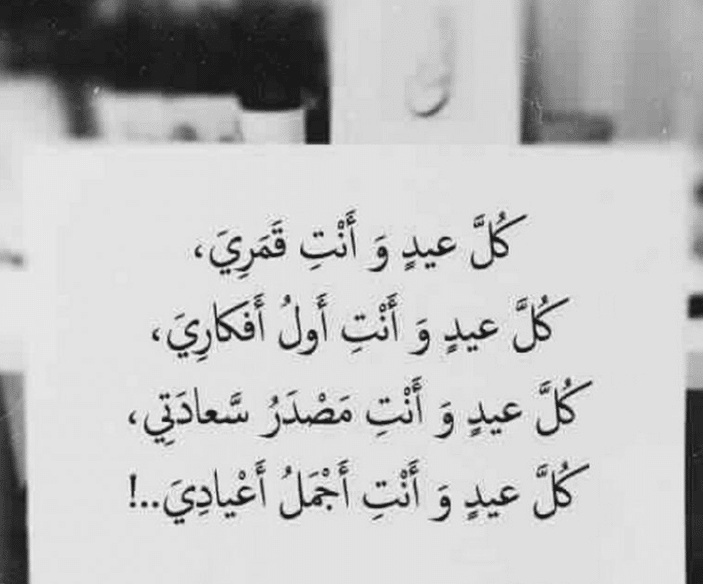 كُلَّ عيدٍ وَ أَنْتِ قَمَرِيَ،
كُلَّ عيدٍ وَ أَنْتِ أَولُ أَفكارِيَ،
كُلَّ عيدٍ وَ أَنْتِ مَصْدَرُ سَّعادَتِي،
كُلَّ عيدٍ وَ أَنْتِ أَجْمَلُ أَعْيادِيَ..!